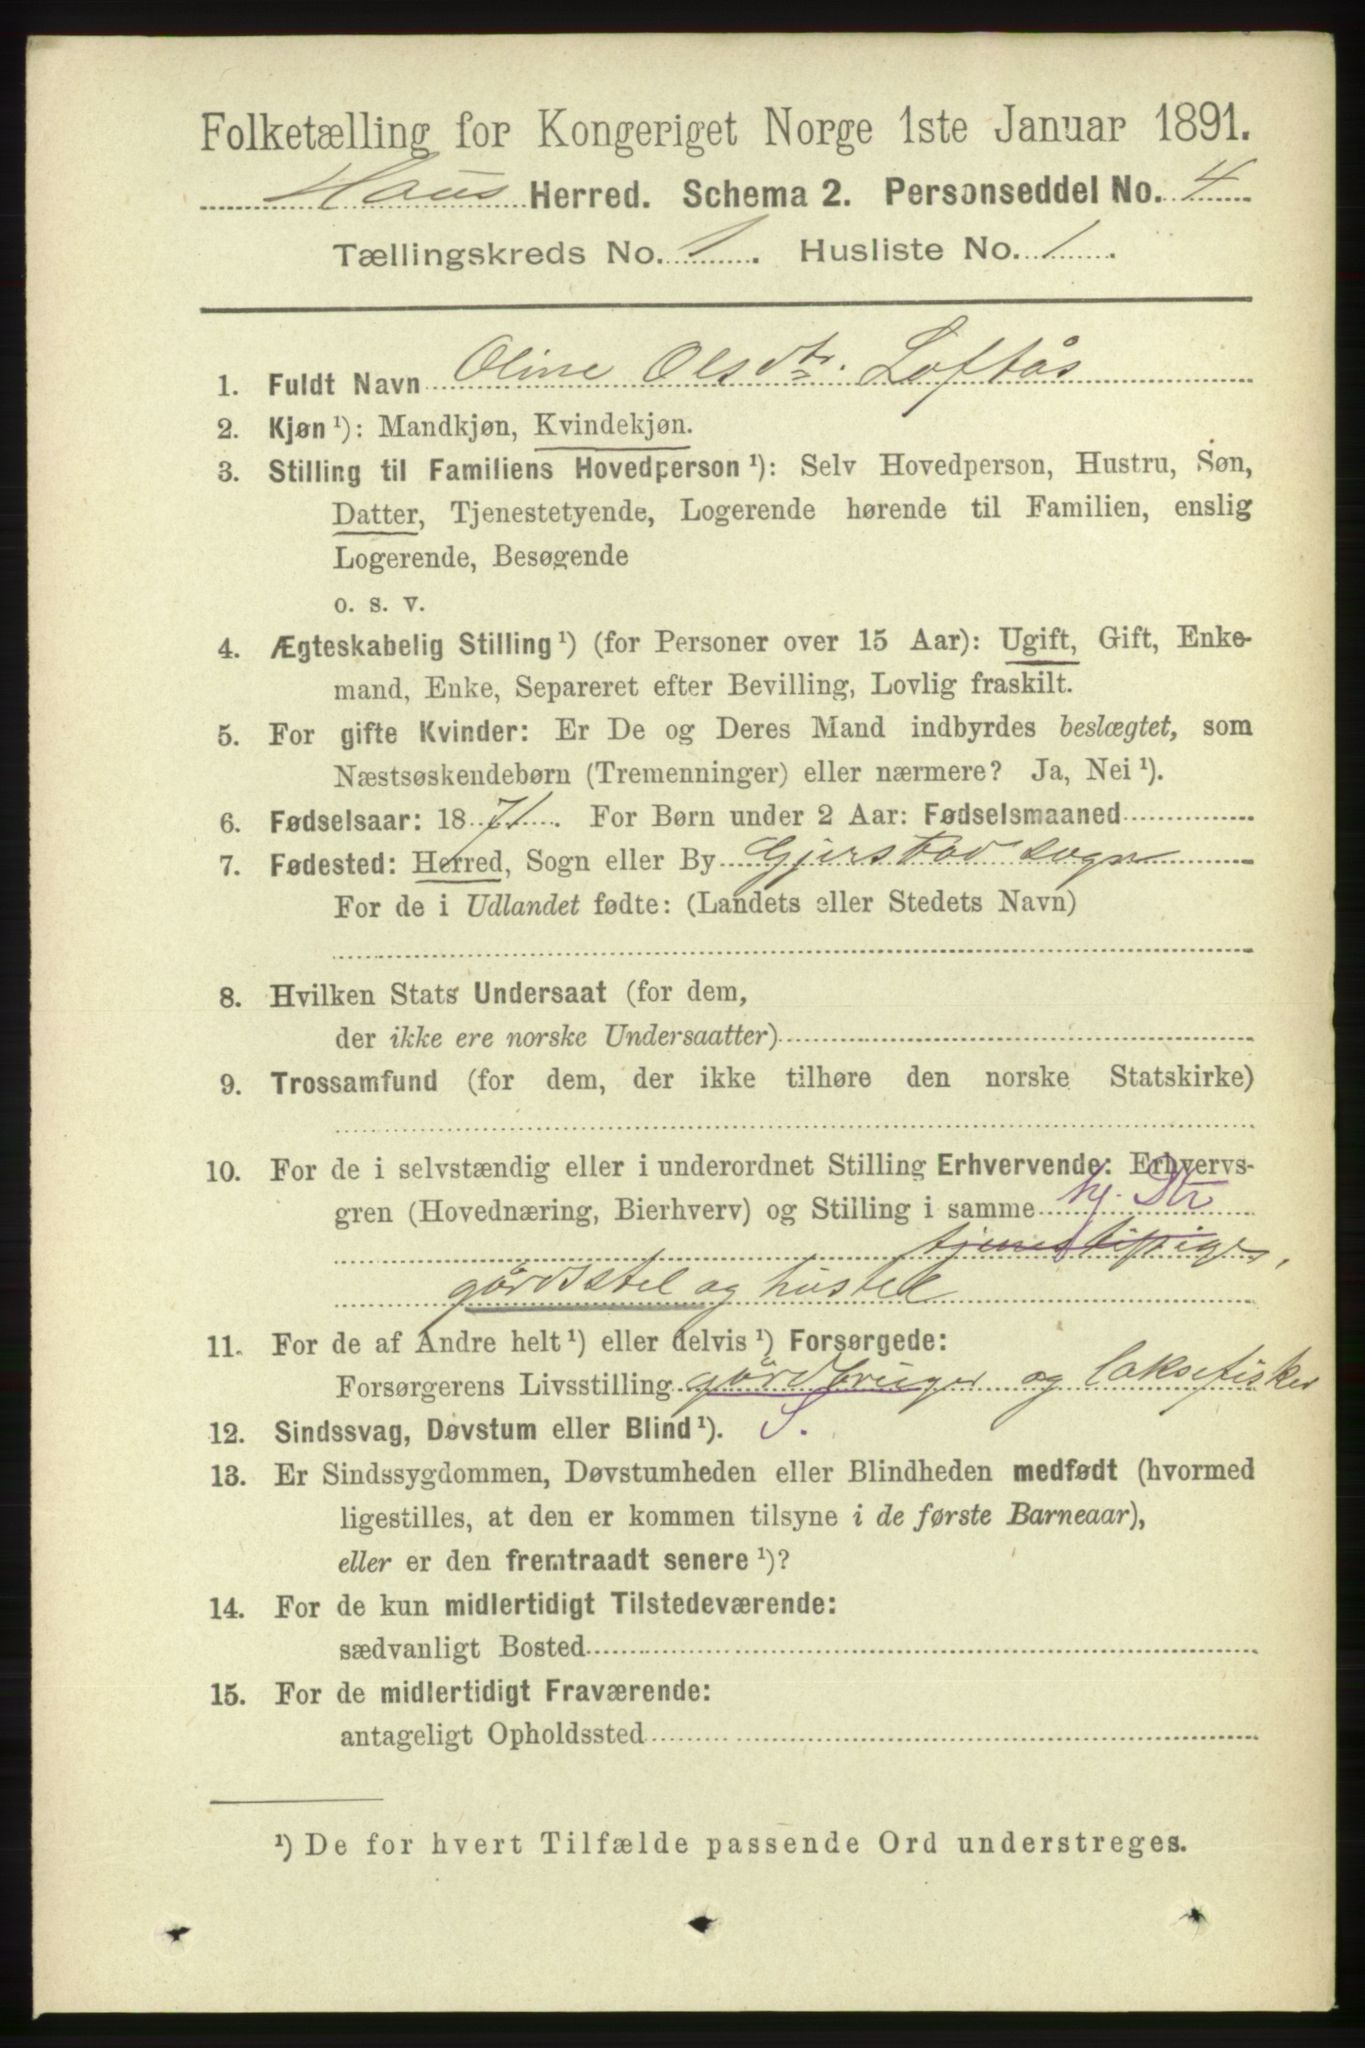 Folketælling for Kongeriget Norge 1ste Januar 1891.
Haus Herred. Schema 2. Personseddel No. 4
Tællingskreds No. 1. Husliste No. 1.
1. Fuldt Navn Oline Olsdtr. Loftås
2. Kjøn ¹): Mandkjøn, Kvindekjøn.
3. Stilling til Familiens Hovedperson ¹): Selv Hovedperson, Hustru, Søn,
Datter, Tjenestetyende, Logerende hørende til Familien, enslig
Logerende, Besøgende
o. s. v.
4. Ægteskabelig Stilling ¹) (for Personer over 15 Aar): Ugift, Gift, Enke-
mand, Enke, Separeret efter Bevilling, Lovlig fraskilt.
5. For gifte Kvinder: Er De og Deres Mand indbyrdes beslægtet, som
Næstsøskendebørn (Tremenninger) eller nærmere? Ja, Nei ¹).
6. Fødselsaar: 1871. For Børn under 2 Aar: Fødselsmaaned
7. Fødested: Herred, Sogn eller By Gjerstad sogn
For de i Udlandet fødte: (Landets eller Stedets Navn)
8. Hvilken Stats Undersaat (for dem,
der ikke ere norske Undersaatter)
9. Trossamfund (for dem, der ikke tilhøre den norske Statskirke)
10. For de i selvstændig eller i underordnet Stilling Erhvervende: Erhvervs-
gren (Hovednæring, Bierhverv) og Stilling i samme hj. Dtr
tjenestepige,
gårdsstel og hustel
11. For de af Andre helt ¹) eller delvis ¹) Forsørgede:
Forsørgerens Livsstilling gårdbruger og laksefisker
12. Sindssvag, Døvstum eller Blind ¹). S.
13. Er Sindssygdommen, Døvstumheden eller Blindheden medfødt (hvormed
ligestilles, at den er kommen tilsyne i de første Barneaar),
eller er den fremtraadt senere ¹)?
14. For de kun midlertidigt Tilstedeværende:
sædvanligt Bosted
15. For de midlertidigt Fraværende:
antageligt Opholdssted
¹) De for hvert Tilfælde passende Ord understreges.